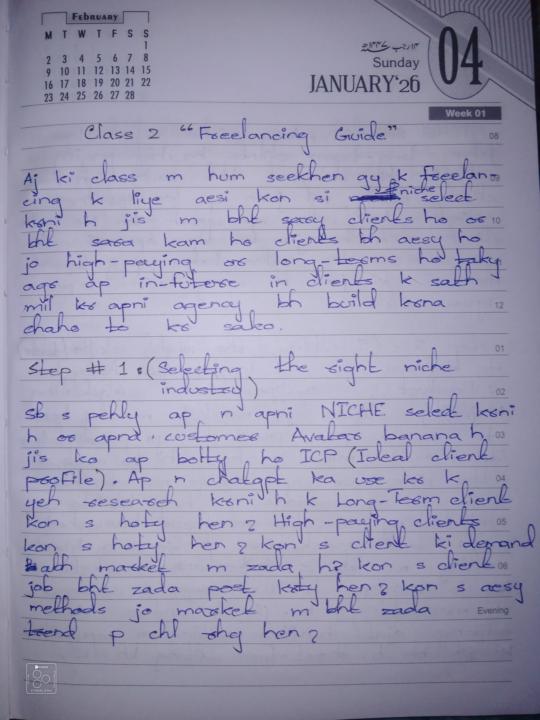 February
M T W T F S S
1
2 3 4 5 6 7 8
9 10 11 12 13 14 15
16 17 18 19 20 21 22
23 24 25 26 27 28
Sunday
04
JANUARY'26
Week 01
Class 2 "Freelancing Guide" 08
Aj ki class m hum seekhen gy k freelan- 09
cing k liye aesi kon si niche select
krni h jis m bht sary clients ho or 10
bht sara kam ho clients bh aesy ho
jo high-paying or long-terms ho taky
agr ap in-future in clients k sath
mil kr apni agency bh build krna 12
chaho to kr sako.
01
Step # 1 : (Selecting the right niche
industry) 02
sb s pehly ap n apni NICHE select krni
h or apna customer Avatar banana h 03
jis ko ap bolty ho ICP (Ideal client
profile). Ap n chatgpt ka use kr k 04
yeh research krni h k Long-Term client
kon s hoty hen? High-paying clients 05
kon s hoty hen? kon s client ki demand
market m zada h? kon s client 06
job bht zada post krty hen? kon s aesy
methods jo market m bht zada Evening
trend p chl rhy hen?